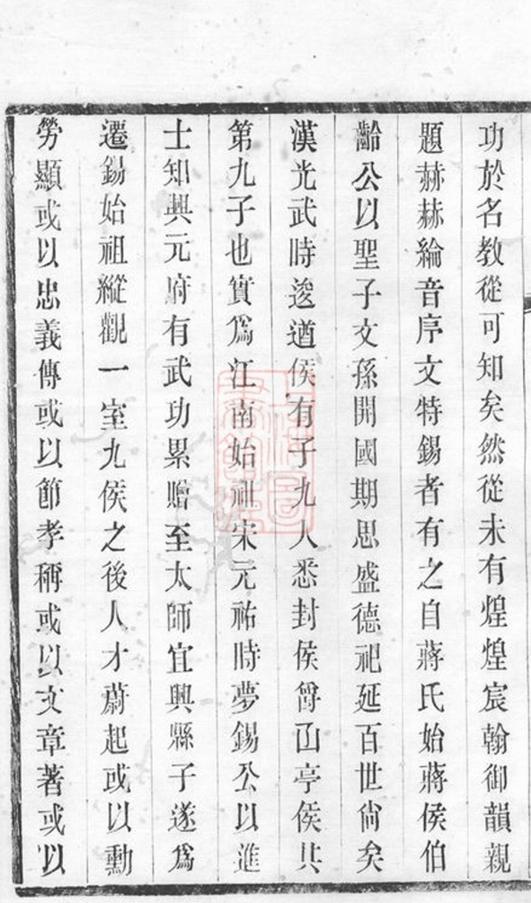 功於名教從可知矣然從未有煌煌宸翰御韻親
題赫赫綸音序文特錫者有之自蔣氏始蔣侯伯
齡公以聖子文孫開國期思盛德祀延百世尙矣
漢光武時逡遒侯有子九人悉封侯爵𠙽亭侯其
第九子也實爲江南始祖宋元祐時夢錫公以進
士知興元府有武功累贈至太師宜興縣子遂爲
遷錫始祖縱觀一室九侯之後人才蔚起或以勳
勞顯或以忠義傳或以節孝稱或以文章著或以